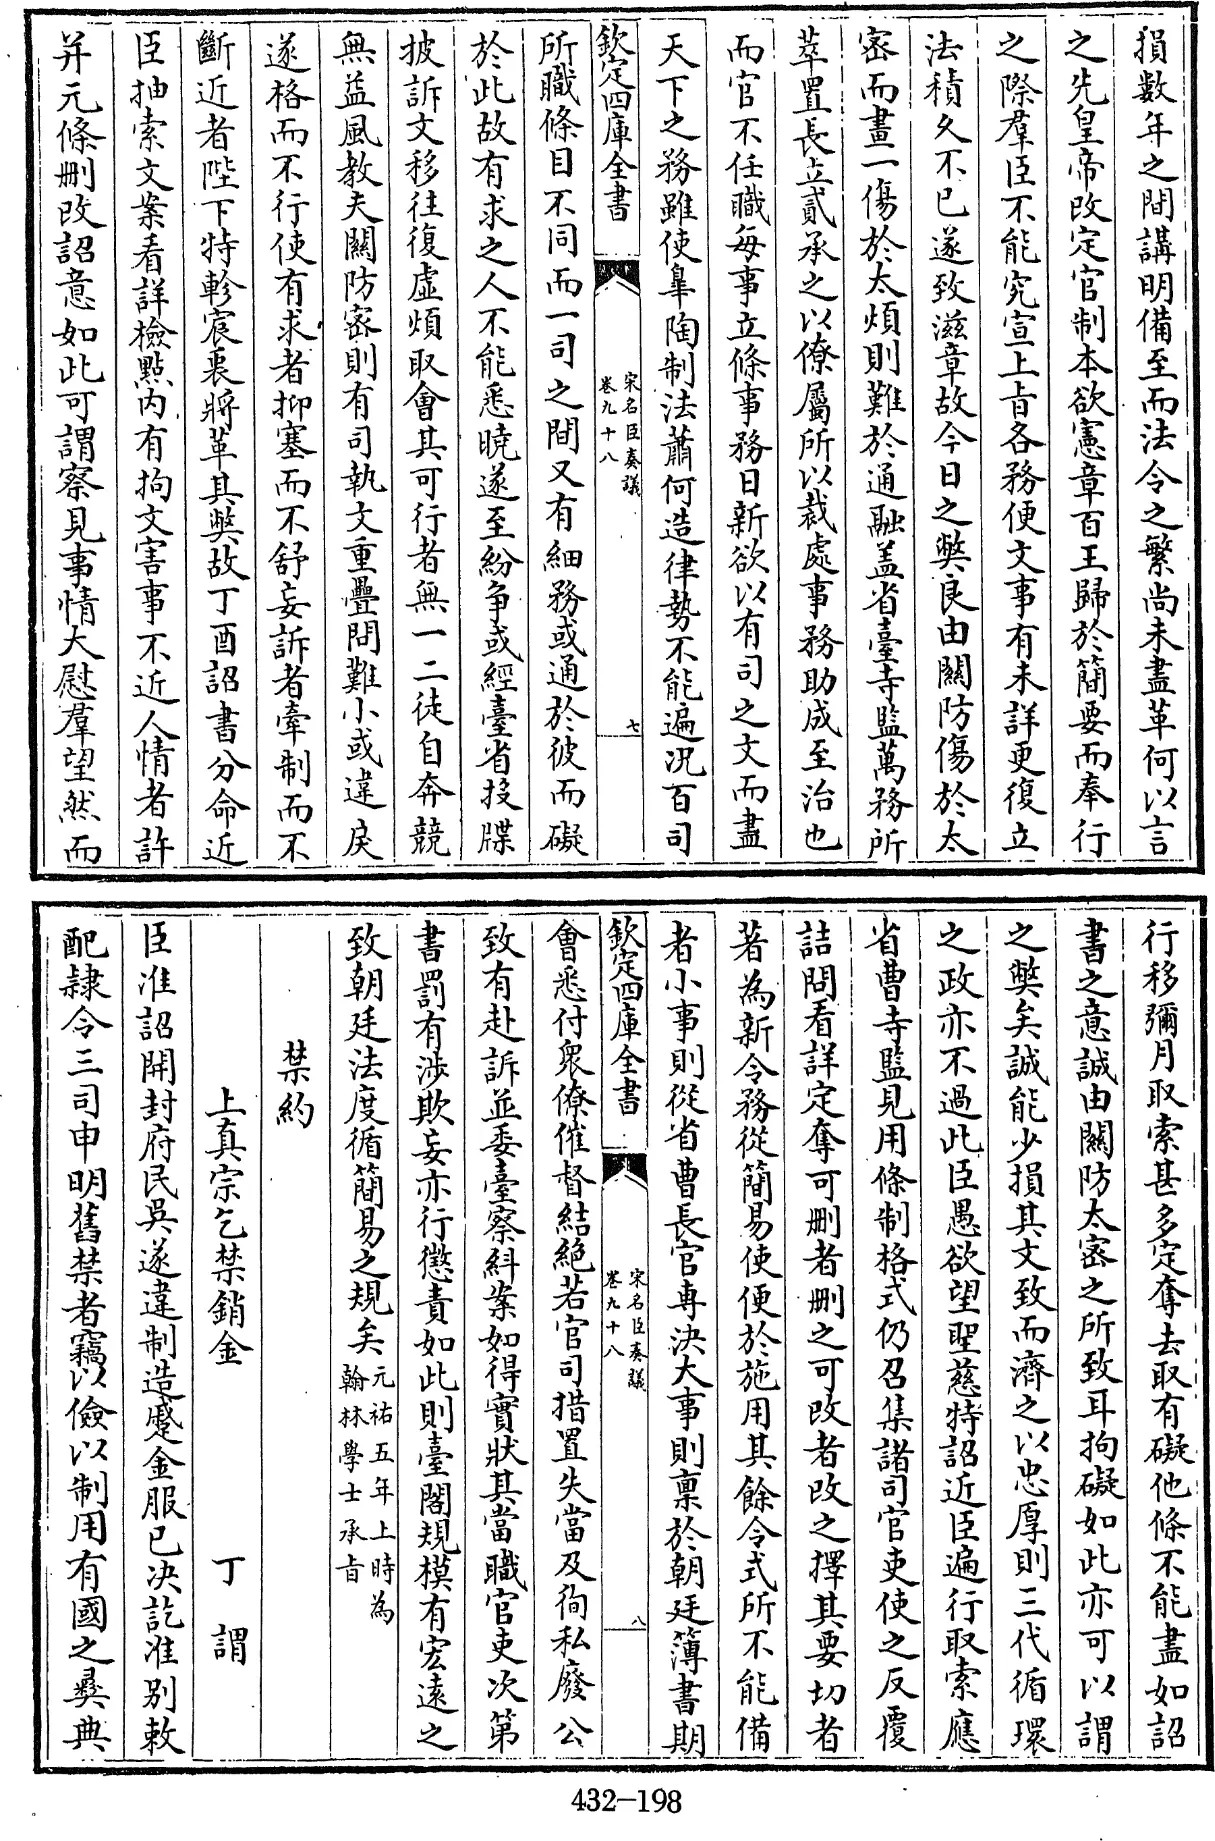 損數年之間講明備至而法令之繁尚未盡革何以言
之先皇帝改定官制本欲憲章百王歸於簡要而奉行
之際羣臣不能究宣上旨各務便文事有未詳更復立
法積久不已遂致滋章故今日之弊良由關防傷於太
密而畫一傷於太煩則難於通融盖省臺寺監萬務所
萃置長立貳承之以僚屬所以裁處事務助成至治也
而官不任職每事立條事務日新欲以有司之文而盡
天下之務雖使臯陶制法蕭何造律勢不能遍況百司
欽定四庫全書
宋名臣奏議
卷九十八
七
所職條目不同而一司之間又有細務或通於彼而礙
於此故有求之人不能悉曉遂至紛争或經臺省投牒
披訴文移往復虛煩取會其可行者無一二徒自奔競
無益風教夫關防密則有司執文重疊問難小或違戾
遂格而不行使有求者抑塞而不舒妄訴者牽制而不
斷近者陛下特軫宸衷將革其弊故丁酉詔書分命近
臣抽索文案看詳檢點内有拘文害事不近人情者許
并元條刪改詔意如此可謂察見事情大慰羣望然而
行移彌月取索甚多定奪去取有礙他條不能盡如詔
書之意誠由關防太密之所致耳拘礙如此亦可以謂
之弊矣誠能少損其文致而濟之以忠厚則三代循環
之政亦不過此臣愚欲望聖慈特詔近臣遍行取索應
省曹寺監見用條制格式仍召集諸司官吏使之反覆
詰問看詳定奪可刪者刪之可改者改之擇其要切者
著為新令務從簡易使便於施用其餘令式所不能備
者小事則從省曹長官專決大事則稟於朝廷簿書期
欽定四庫全書
宋名臣奏議
卷九十八
八
會悉付衆僚催督結絶若官司措置失當及徇私廢公
致有赴訴並委臺察糾案如得實狀其當職官吏次第
書罰有涉欺妄亦行懲責如此則臺閣規模有宏遠之
致朝廷法度循簡易之規矣元祐五年上時為翰林學士承旨
禁約
上真宗乞禁銷金 丁謂
臣准詔開封府民吳遂違制造蹙金服已決訖准别敕
配隷令三司申明舊禁者竊以儉以制用有國之彛典
432-198